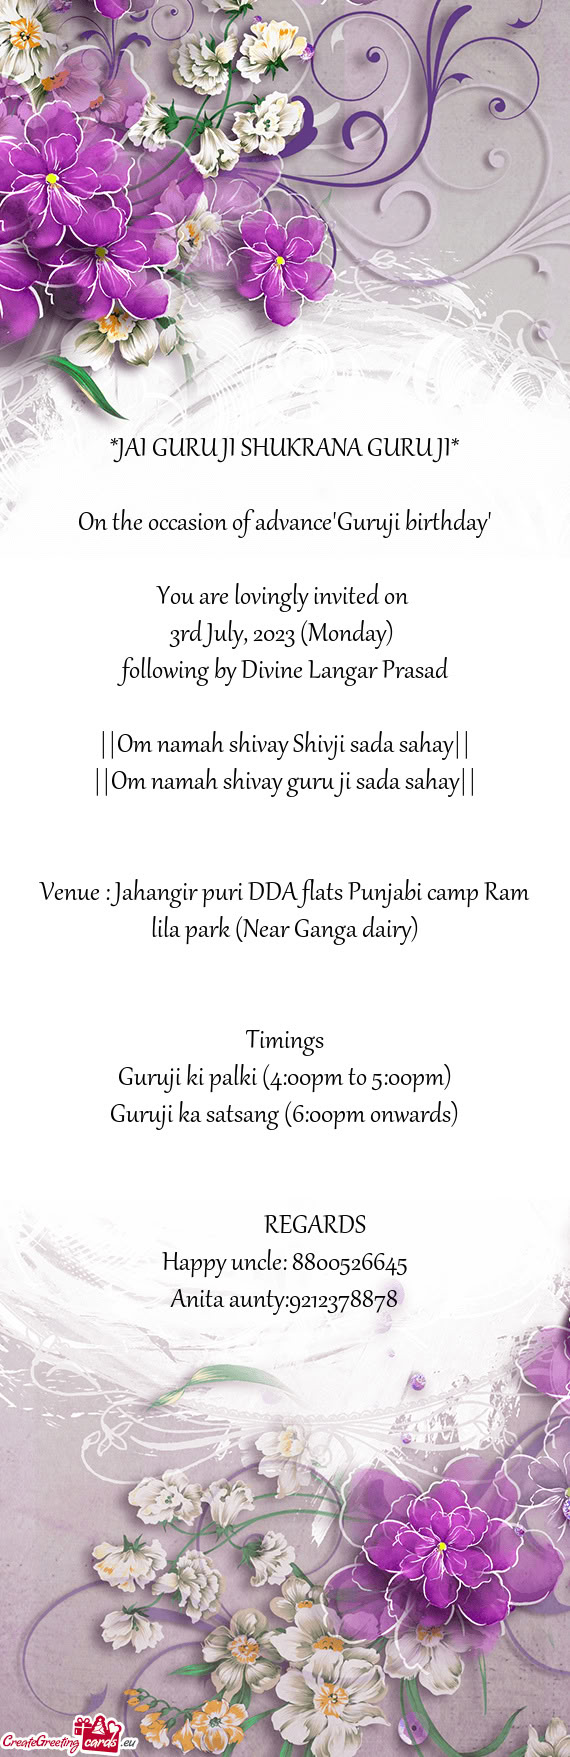 *JAI GURU JI SHUKRANA GURU JI*
On the occasion of advance'Guruji birthday'
You are lovingly invited on
3rd July, 2023 (Monday)
following by Divine Langar Prasad
||Om namah shivay Shivji sada sahay||
||Om namah shivay guru ji sada sahay||
Venue : Jahangir puri DDA flats Punjabi camp Ram
lila park (Near Ganga dairy)
Timings
Guruji ki palki (4:00pm to 5:00pm)
Guruji ka satsang (6:00pm onwards)
REGARDS
Happy uncle: 8800526645
Anita aunty:9212378878
CreateGreeting cards .eu